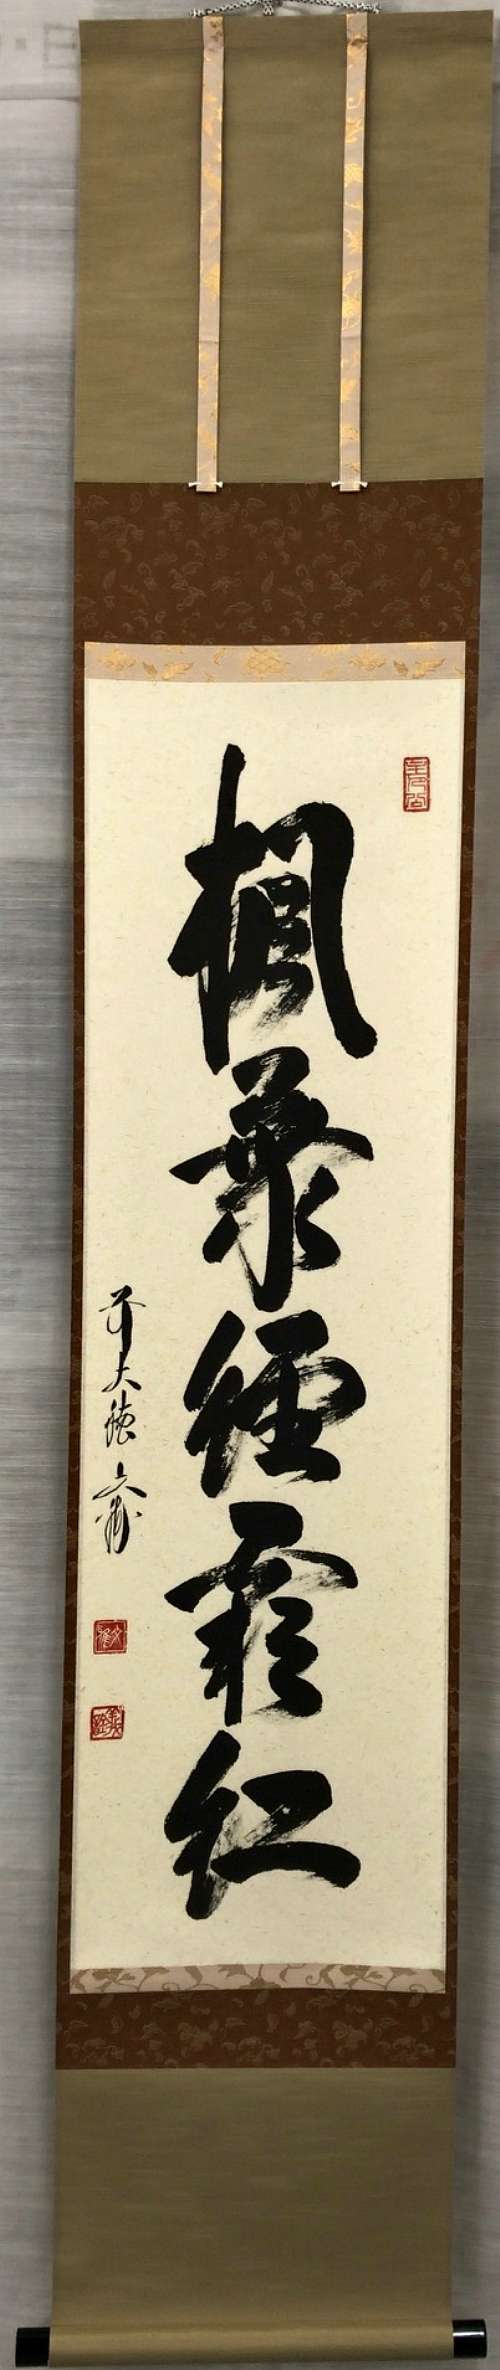 楓葉經霜紅
前大徳